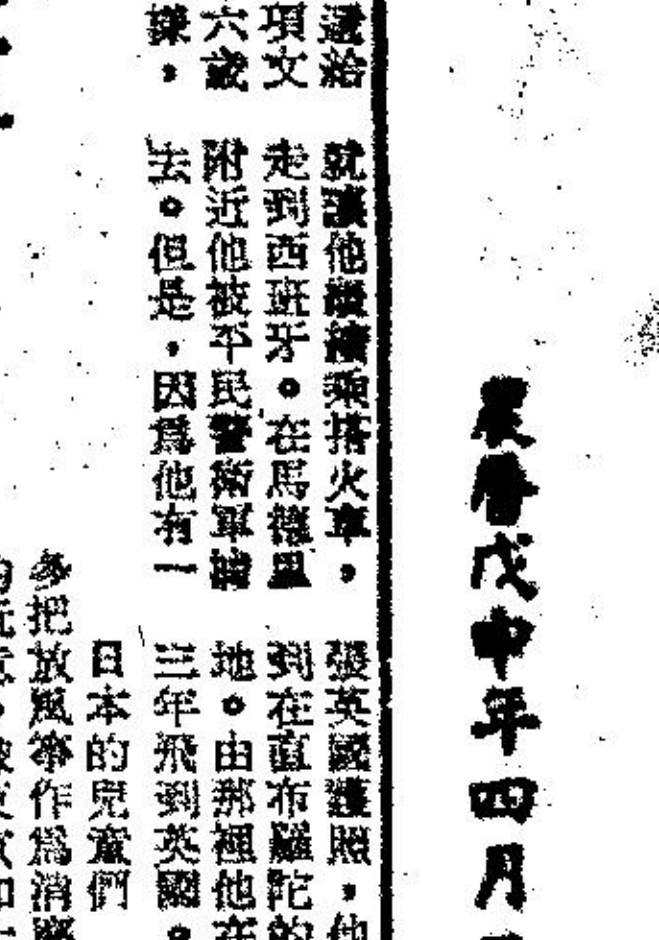 農曆戊申年四月
給
項文
六歲
嫌，
就讓他繼續乘搭火車，
走到西班牙。在馬德里
附近他被平民警衛軍
去。但是，因爲他有一
張英國護照，他
到在直布羅陀的
地。由那裡他在
三年飛到英國。
日本的兒童們
多把放風箏作爲消